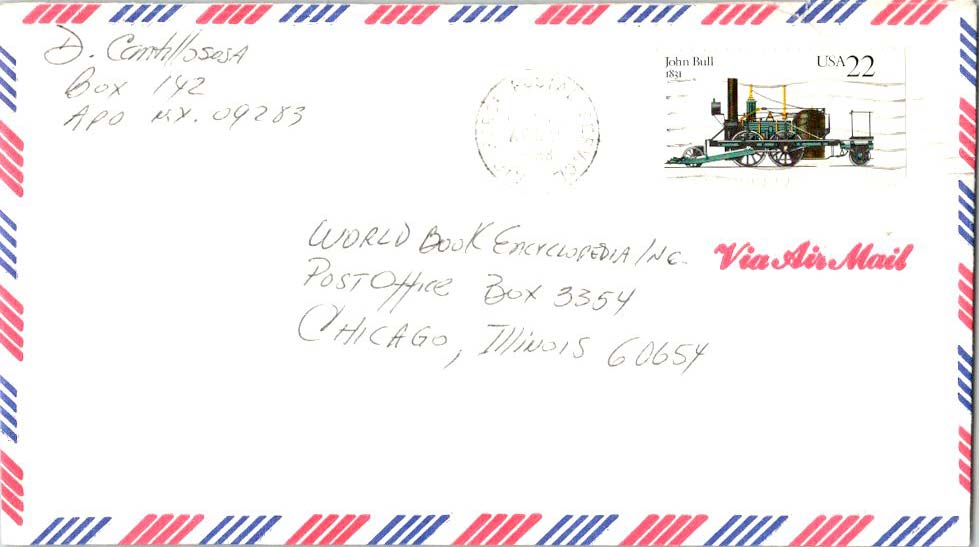 D. Cantillo Sosa
Box 142
APO N.Y. 09283
John Bull
1831
USA 22
WORLD BOOK ENCYCLOPEDIA INC.
POST OFFICE BOX 3354
CHICAGO, ILLINOIS 60654
Via Air Mail